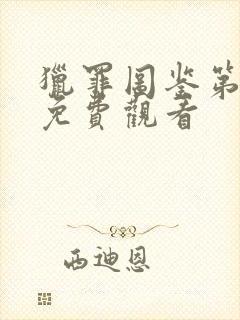 獵罪圖鉴第
免費觀看
西迪恩